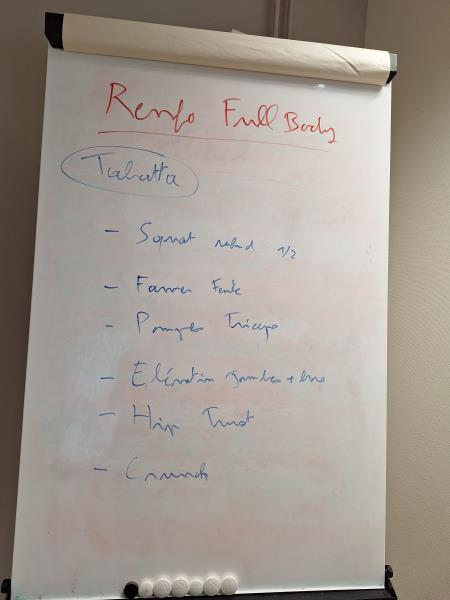 Renfo Full Body
Tabatta
- Squat rebond 1/2
- Farmer Fente
- Pompes Triceps
- Elévation jambes + bras
- Hip Trust
- Crunch